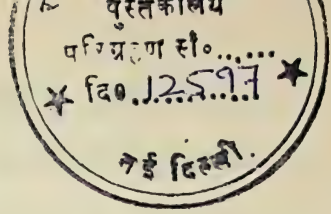 पुस्तकालय
परिग्रहण सं०......
दि०.12597
नई दिल्ली.